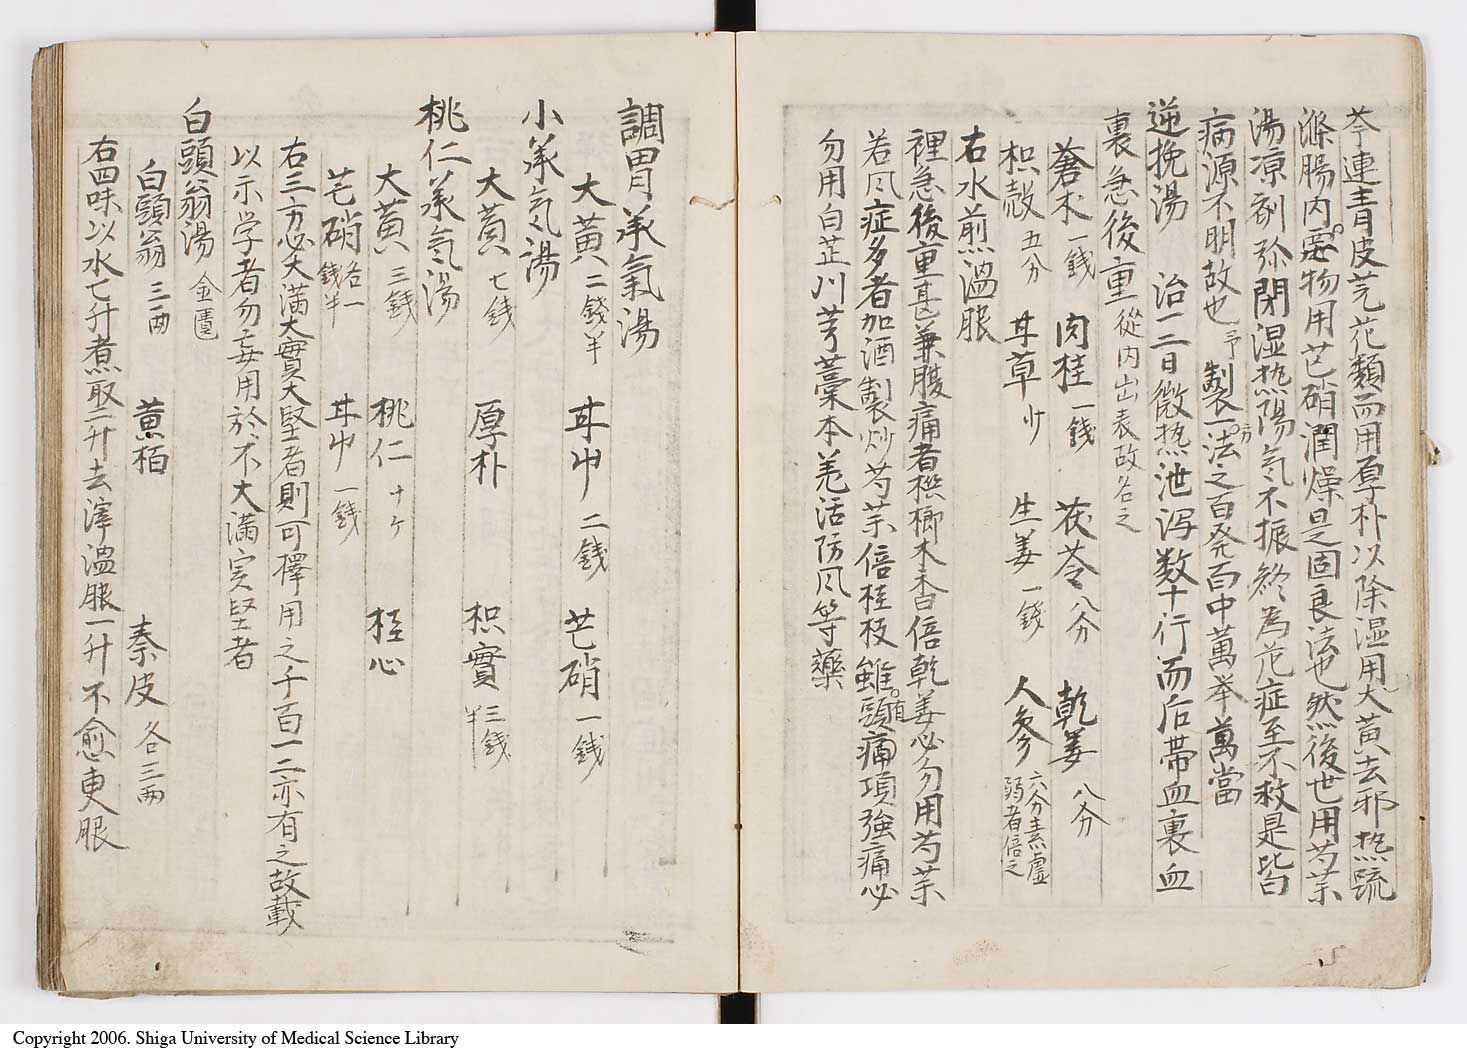 芩連青皮芫花類而用厚朴以除湿用大黄去邪热疏
滌腸内悪物用芒硝潤燥是固良法也然後世用芍薬
湯凉剤弥閉湿热陽気不振終為危症至不救是皆
病源不明故也予製一方法之百発百中萬挙萬當
逆挽湯 治一二日微热泄泻数十行而后帯血裏血
裏急後重 從内出表故名之
蒼朮一錢 肉桂一錢 茯苓八分 乾姜八分
枳殻五分 甘草少 生姜一錢 人参六分素虚弱者倍之
右水煎温服
裡急後重甚兼腹痛者檳榔木香倍乾姜必勿用芍薬
若风症多者加酒製炒芍薬倍桂枝雖有頭痛項強痛必
勿用白芷川芎藁本羌活防风等藥
調胃承氣湯
大黄二錢半 甘中二錢 芒硝一錢
小承气湯
大黄七錢 厚朴 枳實三錢半
桃仁承氣湯
大黄三錢 桃仁十ケ 桂心
芒硝各一錢半 甘中一錢
右三方必大満大實大堅者則可擇用之千百一二亦有之故載
以示学者勿妄用於不大満実堅者
白頭翁湯 金匱
白頭翁三两 黄柏 秦皮各三两
右四味以水七升煮取二升去滓温服一升不愈更服
Copyright 2006. Shiga University of Medical Science Library